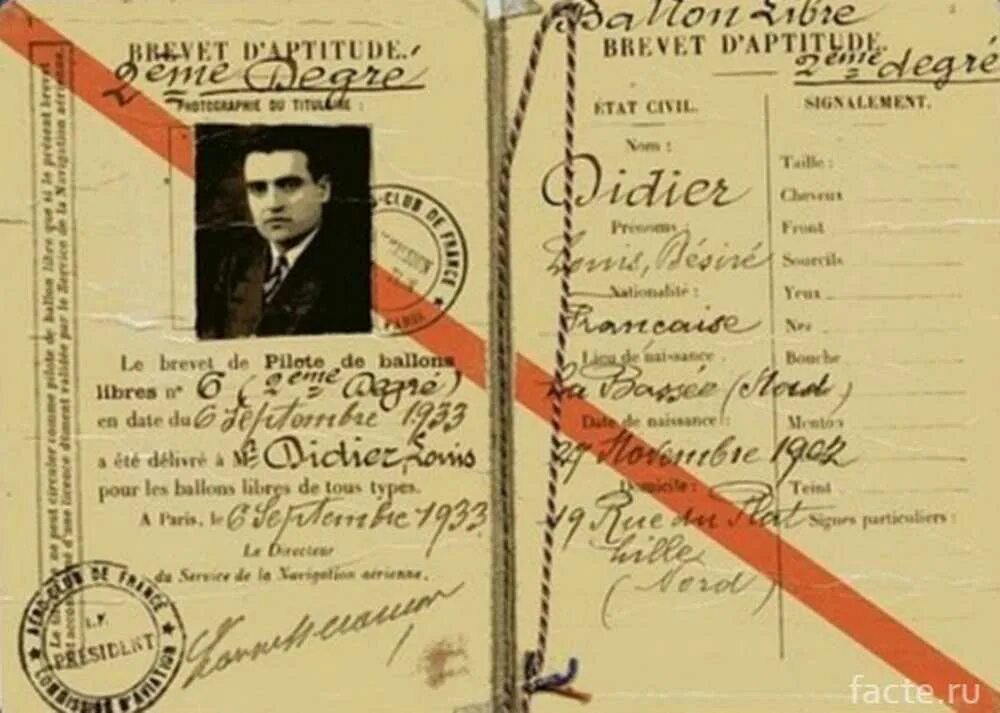 BREVET D'APTITUDE.
2ème Degré
PHOTOGRAPHIE DU TITULAIRE :
O-CLUB DE FRANCE
PARIS
Le brevet de Pilote de ballons
libres n° 6 (2ème Degré)
en date du 6 Septembre 1933
a été délivré à Mr Didier, Louis
pour les ballons libres de tous types.
A Paris, le 6 Septembre 1933
Le Directeur
du Service de la Navigation aérienne.
AÉRO-CLUB DE FRANCE
LE
PRÉSIDENT
COMMISSION D'AVIATION
ne peut circuler comme pilote de ballon libre que si le présent brevet
d'une licence dûment validée par le Service de la Navigation aérienne.
Ballon Libre
BREVET D'APTITUDE.
2ème degré
ÉTAT CIVIL.
Nom :
Didier
Prénoms
Louis, Désiré
Nationalité :
Française
Lieu de naissance
La Bassée (Nord)
Date de naissance :
27 Novembre 1902
Domicile :
19 Rue du Plat
Lille
(Nord)
SIGNALEMENT.
Taille :
Cheveux
Front
Sourcils
Yeux
Nez
Bouche
Menton
Teint
Signes particuliers :
facte.ru